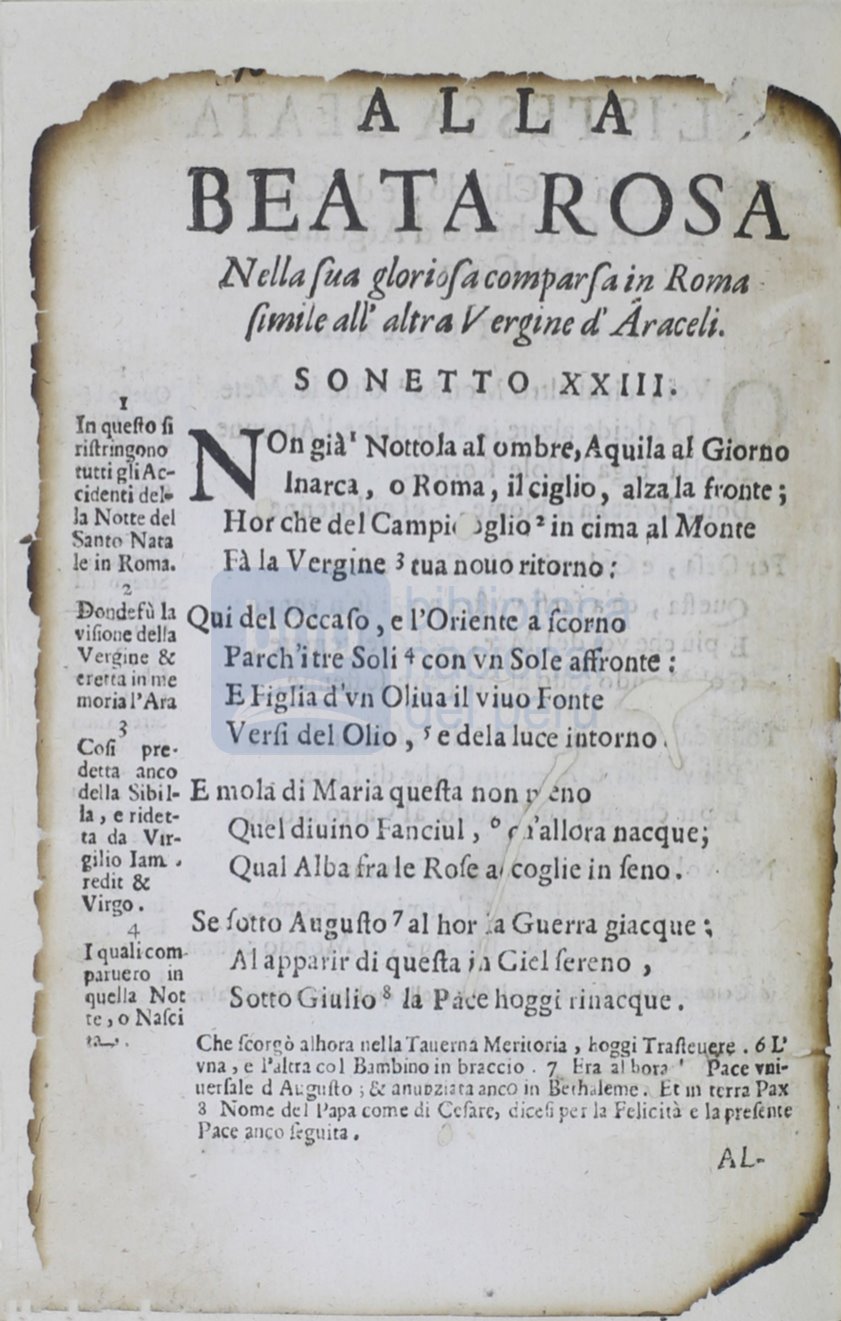 ALLA
BEATA ROSA
Nella ſua glorioſa comparſa in Roma
ſimile all' altra Vergine d' Araceli.
SONETTO XXIII.
NOn già¹ Nottola al ombre, Aquila al Giorno
Inarca, o Roma, il ciglio, alza la fronte;
Hor che del Campidoglio² in cima al Monte
Fà la Vergine ³ tua nouo ritorno:
Qui del Occaſo, e l'Oriente a ſcorno
Parch'i tre Soli ⁴ con vn Sole affronte:
E Figlia d'vn Oliua il viuo Fonte
Verſi del Olio, ⁵ e dela luce intorno.
E mola di Maria queſta non meno
Quel diuino Fanciul, ⁶ ch'allora nacque;
Qual Alba fra le Roſe accoglie in ſeno.
Se ſotto Auguſto ⁷ al hor la Guerra giacque;
Al apparir di queſta in Ciel ſereno,
Sotto Giulio ⁸ la Pace hoggi rinacque.
1
In queſto ſi
riſtringono
tutti gli Ac-
cidenti del-
la Notte del
Santo Nata
le in Roma.
2
Dondefù la
viſione della
Vergine &
eretta in me
moria l'Ara
3
Coſi pre-
detta anco
della Sibil-
la, e ridet-
ta da Vir-
gilio Iam.
redit &
Virgo.
4
I quali com-
paruero in
quella Not
te, o Naſci
ta.
Che ſcorgò alhora nella Tauerna Meritoria, hoggi Traſteuere. 6 L'
vna, e l'altra col Bambino in braccio. 7 Era al hora Pace vni-
uerſale d Auguſto; & anunziata anco in Bethaleme. Et in terra Pax
8 Nome del Papa come di Ceſare, diceſi per la Felicità e la preſente
Pace anco ſeguita.
AL-
biblioteca
nacional
del perú